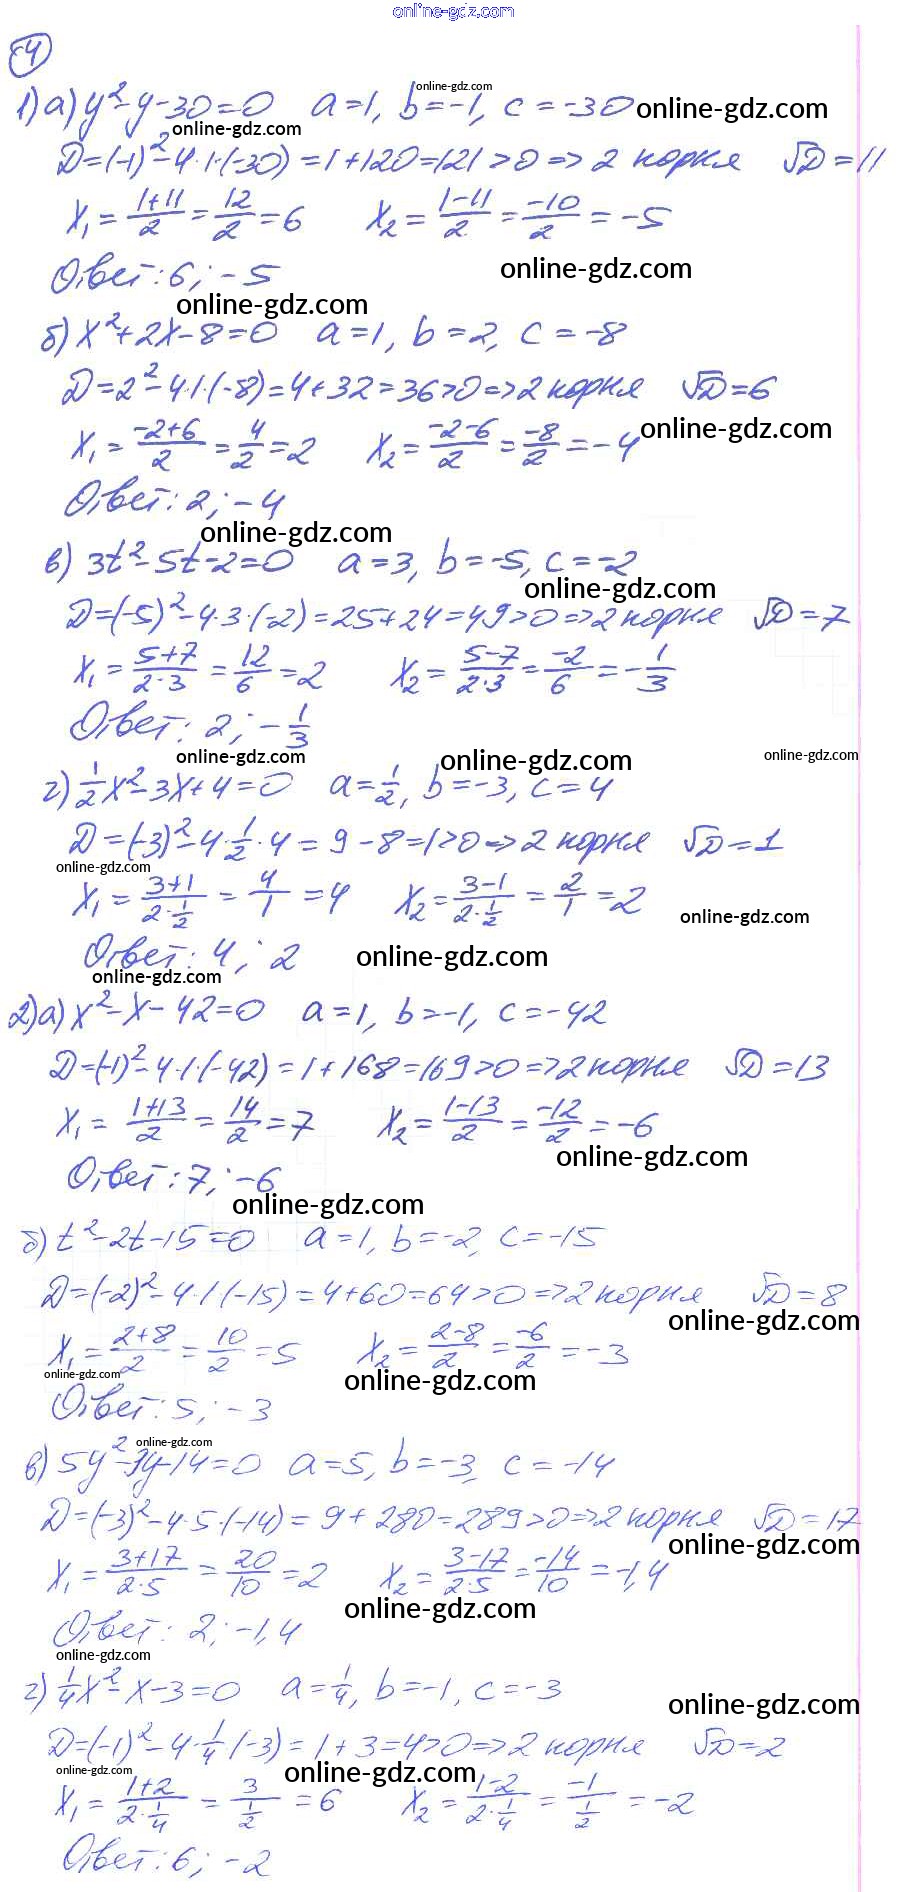 online-gdz.com
4
1) а) y² - y - 30 = 0   a = 1, b = -1, c = -30 online-gdz.com
online-gdz.com
online-gdz.com
D = (-1)² - 4·1·(-30) = 1 + 120 = 121 > 0 => 2 корня   √D = 11
X₁ = (1+11)/2 = 12/2 = 6   X₂ = (1-11)/2 = -10/2 = -5
Ответ: 6; -5   online-gdz.com
online-gdz.com
б) X² + 2X - 8 = 0   a = 1, b = 2, c = -8
D = 2² - 4·1·(-8) = 4 + 32 = 36 > 0 => 2 корня   √D = 6
X₁ = (-2+6)/2 = 4/2 = 2   X₂ = (-2-6)/2 = -8/2 = -4 online-gdz.com
Ответ: 2; -4
online-gdz.com
в) 3t² - 5t - 2 = 0   a = 3, b = -5, c = -2
online-gdz.com
D = (-5)² - 4·3·(-2) = 25 + 24 = 49 > 0 => 2 корня   √D = 7
X₁ = (5+7)/(2·3) = 12/6 = 2   X₂ = (5-7)/(2·3) = -2/6 = -1/3
Ответ: 2; -1/3
online-gdz.com   online-gdz.com   online-gdz.com
г) 1/2 X² - 3X + 4 = 0   a = 1/2, b = -3, c = 4
D = (-3)² - 4·1/2·4 = 9 - 8 = 1 > 0 => 2 корня   √D = 1
online-gdz.com
X₁ = (3+1)/(2·1/2) = 4/1 = 4   X₂ = (3-1)/(2·1/2) = 2/1 = 2
online-gdz.com
Ответ: 4; 2   online-gdz.com
online-gdz.com
2) а) X² - X - 42 = 0   a = 1, b = -1, c = -42
D = (-1)² - 4·1·(-42) = 1 + 168 = 169 > 0 => 2 корня   √D = 13
X₁ = (1+13)/2 = 14/2 = 7   X₂ = (1-13)/2 = -12/2 = -6
online-gdz.com
Ответ: 7; -6
online-gdz.com
б) t² - 2t - 15 = 0   a = 1, b = -2, c = -15
D = (-2)² - 4·1·(-15) = 4 + 60 = 64 > 0 => 2 корня   √D = 8
online-gdz.com
X₁ = (2+8)/2 = 10/2 = 5   X₂ = (2-8)/2 = -6/2 = -3
online-gdz.com   online-gdz.com
Ответ: 5; -3
online-gdz.com
в) 5y² - 3y - 14 = 0   a = 5, b = -3, c = -14
D = (-3)² - 4·5·(-14) = 9 + 280 = 289 > 0 => 2 корня   √D = 17
online-gdz.com
X₁ = (3+17)/(2·5) = 20/10 = 2   X₂ = (3-17)/(2·5) = -14/10 = -1,4
online-gdz.com
Ответ: 2; -1,4
online-gdz.com
г) 1/4 X² - X - 3 = 0   a = 1/4, b = -1, c = -3
online-gdz.com
D = (-1)² - 4·1/4·(-3) = 1 + 3 = 4 > 0 => 2 корня   √D = 2
online-gdz.com   online-gdz.com
X₁ = (1+2)/(2·1/4) = 3/(1/2) = 6   X₂ = (1-2)/(2·1/4) = -1/(1/2) = -2
Ответ: 6; -2